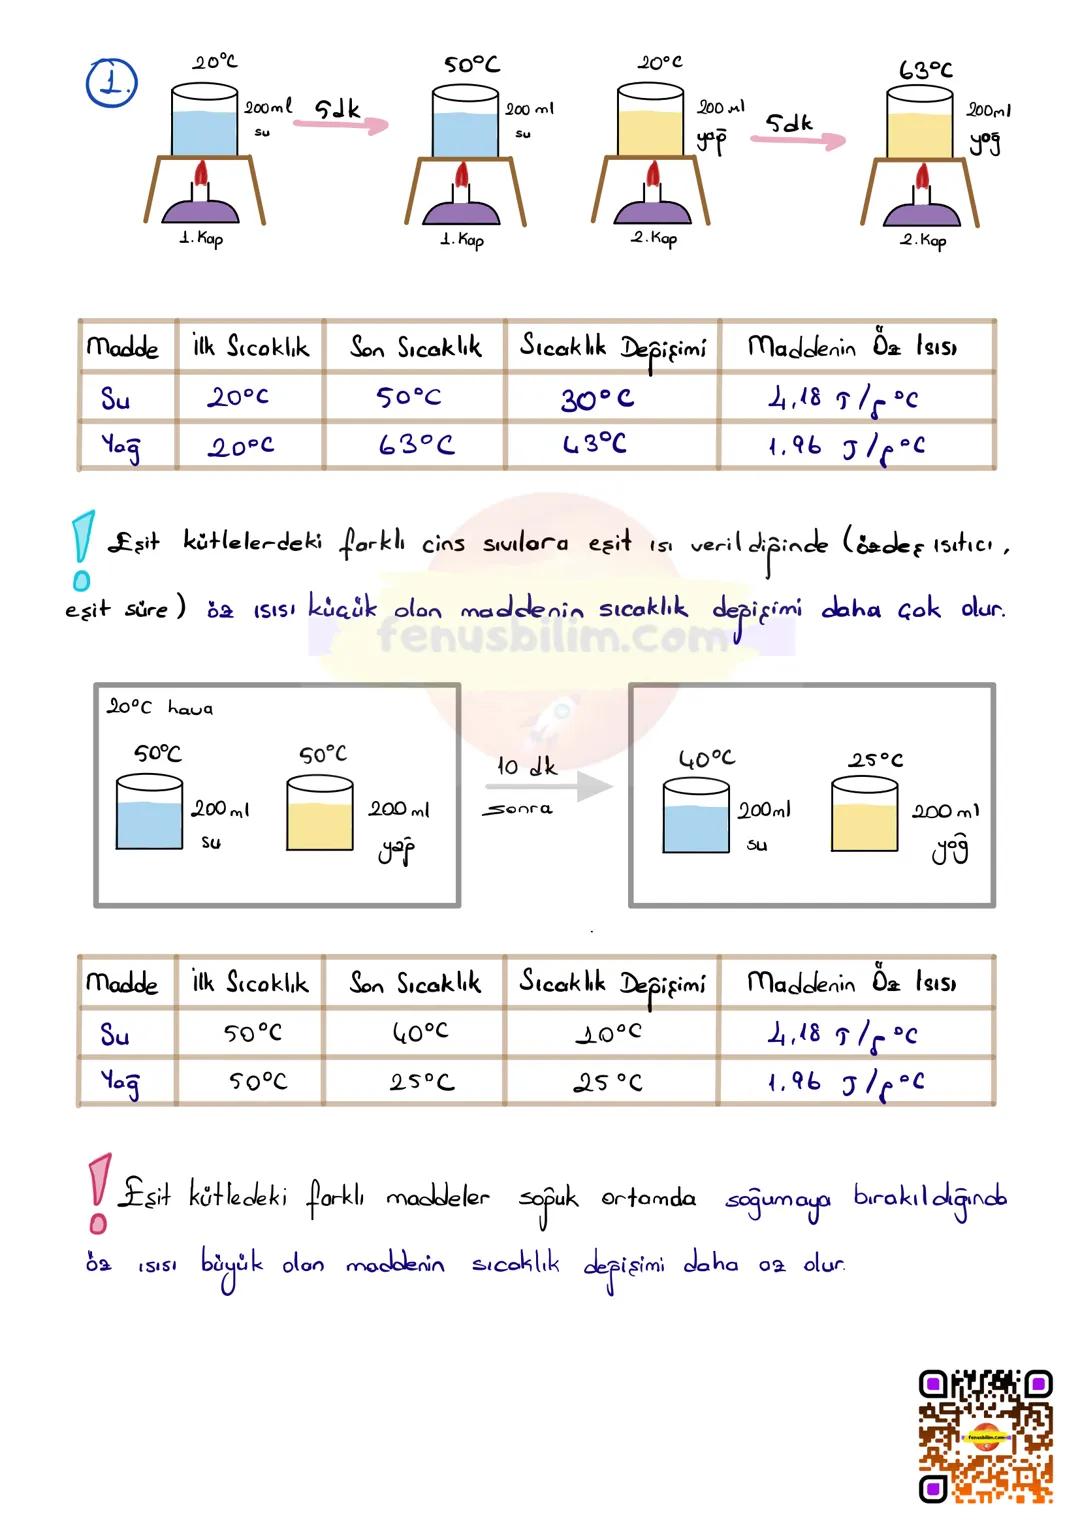 1.
20°C 50°C 20°C 63°C
200ml su 5dk 200 ml su 200 ml yağ 5dk 200ml yağ
1. Kap 1. Kap 2. Kap 2. Kap
Madde İlk Sıcaklık Son Sıcaklık Sıcaklık Değişimi Maddenin Öz Isısı
Su 20°C 50°C 30°C 4,18 J/g°C
Yağ 20°C 63°C 43°C 1.96 J/g°C
! Eşit kütlelerdeki farklı cins sıvılara eşit ısı verildiğinde (özdeş ısıtıcı,
eşit süre) öz ısısı küçük olan maddenin sıcaklık değişimi daha çok olur.
fenusbilim.com
20°C hava
50°C 50°C 10 dk sonra 40°C 25°C
200ml su 200 ml yağ 200ml su 200 ml yağ
Madde İlk Sıcaklık Son Sıcaklık Sıcaklık Değişimi Maddenin Öz Isısı
Su 50°C 40°C 10°C 4,18 J/g°C
Yağ 50°C 25°C 25°C 1.96 J/g°C
! Eşit kütledeki farklı maddeler soğuk ortamda soğumaya bırakıldığında
öz ısısı büyük olan maddenin sıcaklık değişimi daha az olur.
fenusbilim.com